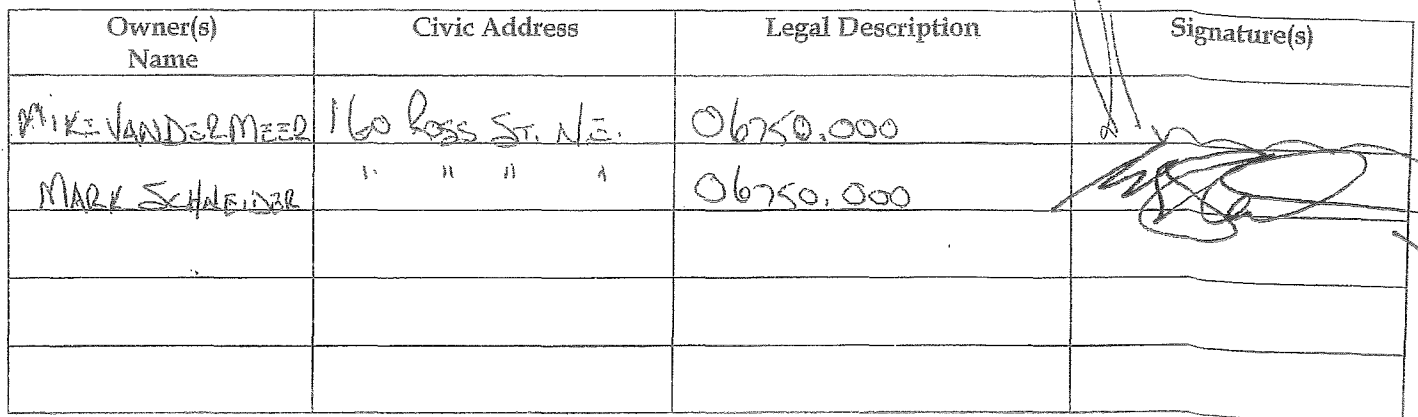 Owner(s) Name Civic Address Legal Description Signature(s)
MIKE VANDERMEER 160 Ross ST. N.E. 06750.000
MARK SCHNEIDER " " " " 06750.000